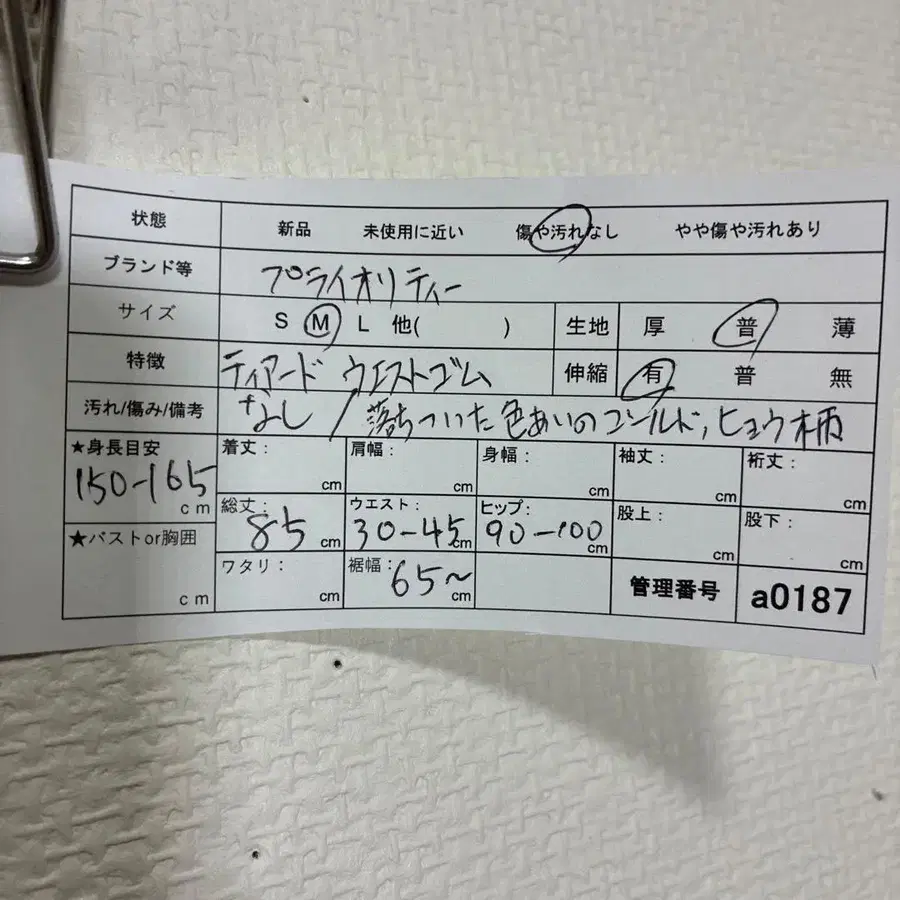 状態 新品 未使用に近い 傷や汚れなし やや傷や汚れあり
ブランド等 プライオリティー
サイズ S M L 他( ) 生地 厚 普 薄
特徴 ティアード ウエストゴム 伸縮 有 普 無
汚れ/傷み/備考 なし / 落ちついた色あいのゴールド, ヒョウ柄
★身長目安 着丈: 肩幅: 身幅: 袖丈: 裄丈:
150-165 cm cm cm cm cm cm
総丈: ウエスト: ヒップ: 股上: 股下:
85 cm 30-45 cm 90-100 cm cm cm
★バストor胸囲 cm
ワタリ: cm 裾幅: 65~ cm 管理番号 a0187